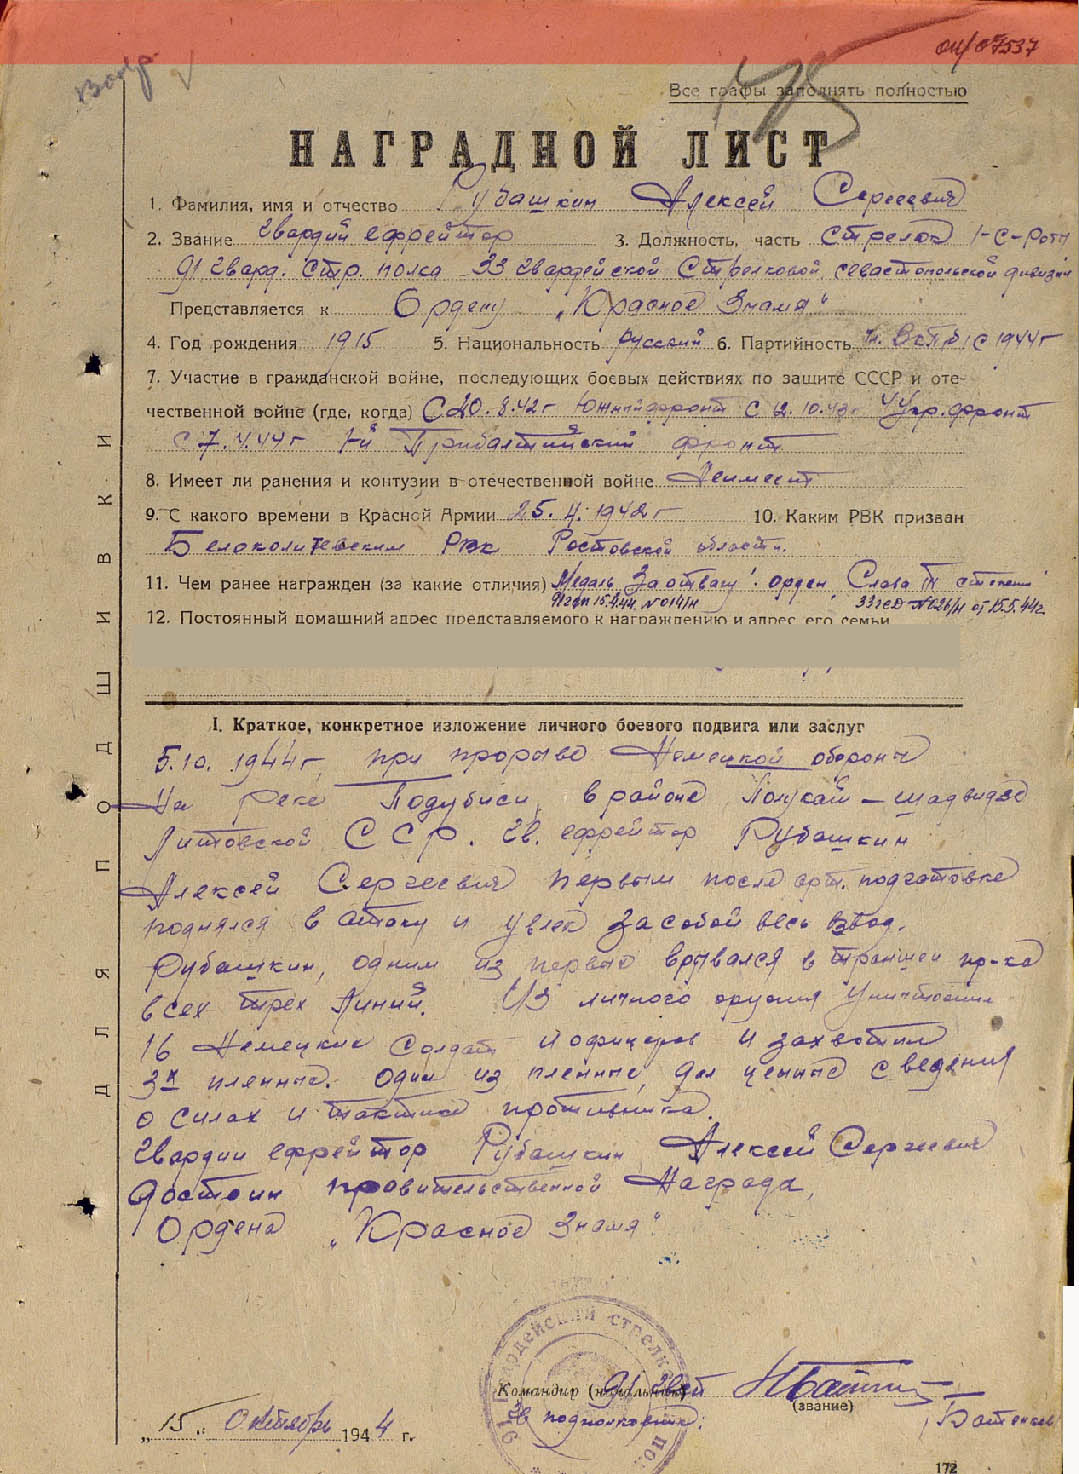 04/07537
Все графы заполнять полностью
НАГРАДНОЙ ЛИСТ
1. Фамилия, имя и отчество Рубашкин Алексей Сергеевич
2. Звание Гвардий ефрейтор 3. Должность, часть Стрелок 1-С-Роты
91 Гвард. Стр. полка 33 Гвардейской Стрелковой Севастопольской дивизии
Представляется к Ордену „Красное Знамя"
4. Год рождения 1915 5. Национальность Русский 6. Партийность чл. ВКПб с 1944 г
7. Участие в гражданской войне, последующих боевых действиях по защите СССР и оте-
чественной войне (где, когда) С 20.8.42 г Южный фронт с 2.10.43 г 4 Укр. фронт
с 7.44 г 1-й Прибалтийский фронт
8. Имеет ли ранения и контузии в отечественной войне Неимеит
9. С какого времени в Красной Армии 25.4.1942 г 10. Каким РВК призван
Белоколитвеским РВК Ростовской области.
11. Чем ранее награжден (за какие отличия) Медаль „За отвагу". орден „Слава III степени"
91 гсп 15.4.44 № 019/н 33 гсд № 26/н от 15.5.44 г
12. Постоянный домашний адрес представляемого к награждению и адрес его семьи
I. Краткое, конкретное изложение личного боевого подвига или заслуг
5.10.1944 г, при прорыве Немецкой обороны
На реке Подубиси, в районе Полукай-Шадвидзе
Литовской ССР. Гв. ефрейтор Рубашкин
Алексей Сергеевич первым после арт. подготовке
поднялся в атаку и увлек за собой весь взвод.
Рубашкин, одним из первых врывался в траншеи пр-ка
всех трех линий. Из личного оружия уничтожил
16 Немецких солдат и офицеров и захватил
3х пленных. Один из пленных, дал ценные сведения
о силах и тактике противника.
Гвардии ефрейтор Рубашкин Алексей Сергеевич
достоин правительственной Награды,
Ордена „Красное Знамя"
Командир (начальник) 91 гвсп
Гв подполковник:
(звание)
/Батенков/
„15" Октябрь 1944 г.
91 гвардейский стрелк пол
172
ДЛЯ ПОДШИВКИ